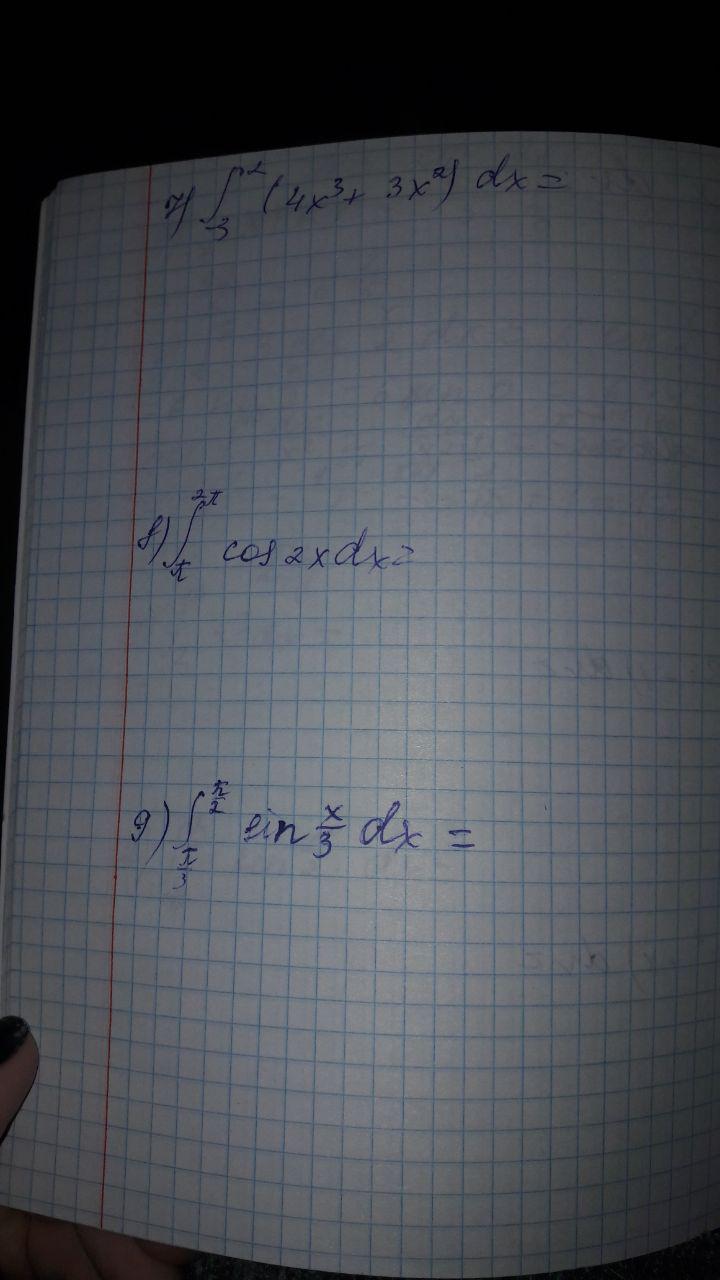 7) ∫₋₃² (4x³ + 3x²) dx =
8) ∫_π^2π cos 2x dx =
9) ∫_π/3^π/2 sin x/3 dx =